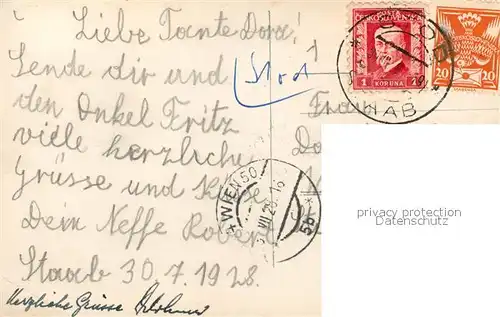 Liebe Tante Dora!
Sende dir und
den Onkel Fritz
viele herzliche
Grüsse und Küsse
Dein Neffe Robert
Staab 30.7.1928.
Herzliche Grüsse
Frau
ČESKOSLOVENSKO
1 KORUNA
20 20
WIEN 50
5b
privacy protection
Datenschutz